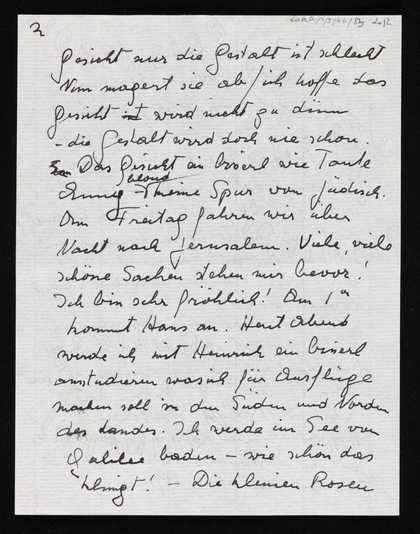 2
Gesicht nur die Gestalt ist schlecht
Nun magert sie ab / ich hoffe das
Gesicht ist wird nicht zu dünn
– die Gestalt wird doch nie schön.
Das Gesicht ein bisserl wie Tante
blond
Keine Spur von jüdisch.
Am Freitag fahren wir über
Nacht nach Jerusalem. Viele, viele
schöne Sachen stehen mir bevor!
Ich bin sehr fröhlich! Am 1ten
kommt Hans an. Heut Abend
werde ich mit Heinrich ein bisserl
anstudieren was ich für Ausflüge
machen soll in den Süden und Norden
des Landes. Ich werde im See von
Galilee baden – wie schön das
klingt! – Die kleinen Rosen